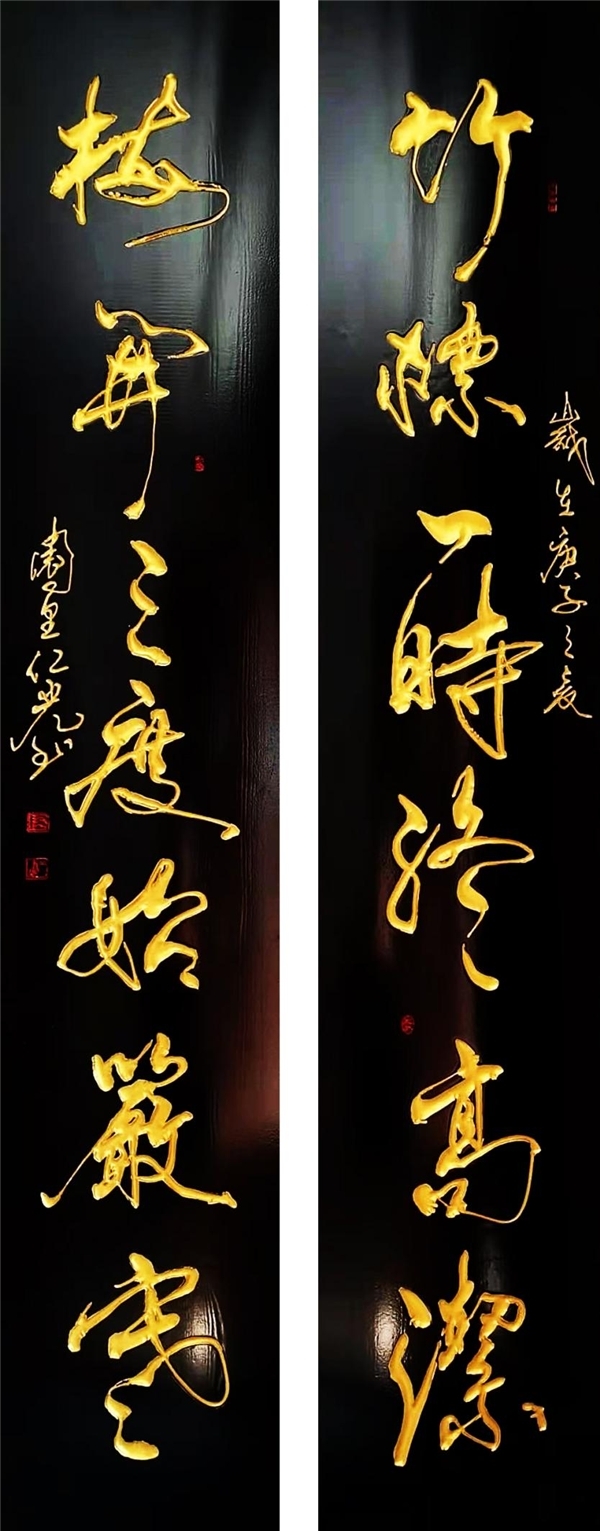 竹一時終高潔
歲在庚子之夏
梅開二度始嚴寒
里仁